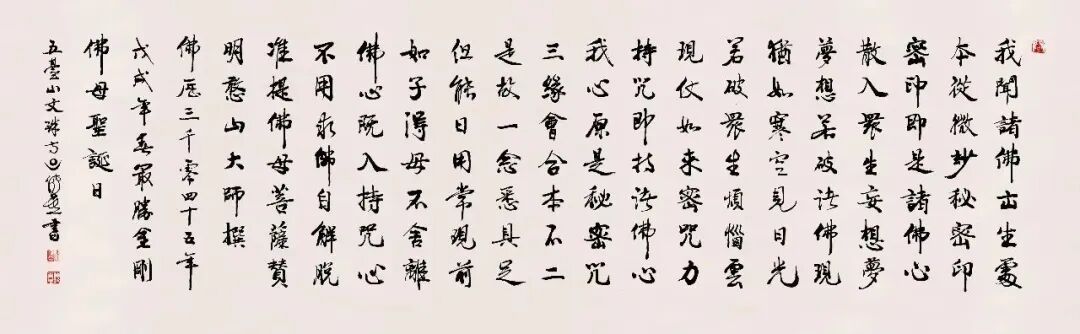 我聞諸佛出生處
本從微妙秘密印
密印即是諸佛心
散入眾生妄想夢
夢想若破諸佛現
猶如寒空見日光
若破眾生煩惱雲
現仗如來密咒力
持咒即持諸佛心
我心原是秘密咒
三緣會合本不二
是故一念悉具足
但能日用常現前
如子得母不舍離
佛心既入持咒心
不用求佛自解脫
准提佛母菩薩贊
明憨山大師撰
佛歷三千零四十五年
戊戌年無最勝金剛
佛母聖誕日
五臺山文殊寺書